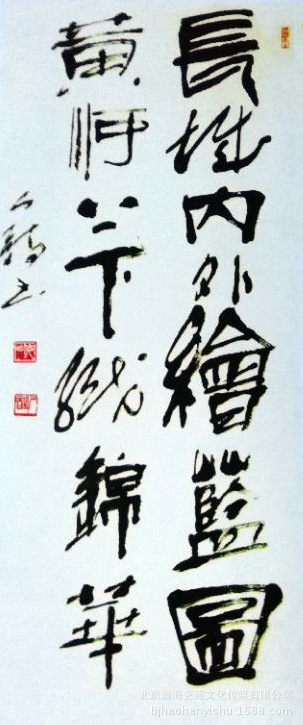 長城内外繪藍圖
黄河上下織錦華
北京瀚海艺苑文化传媒有限公司
bjhaohanyishu.1688.com